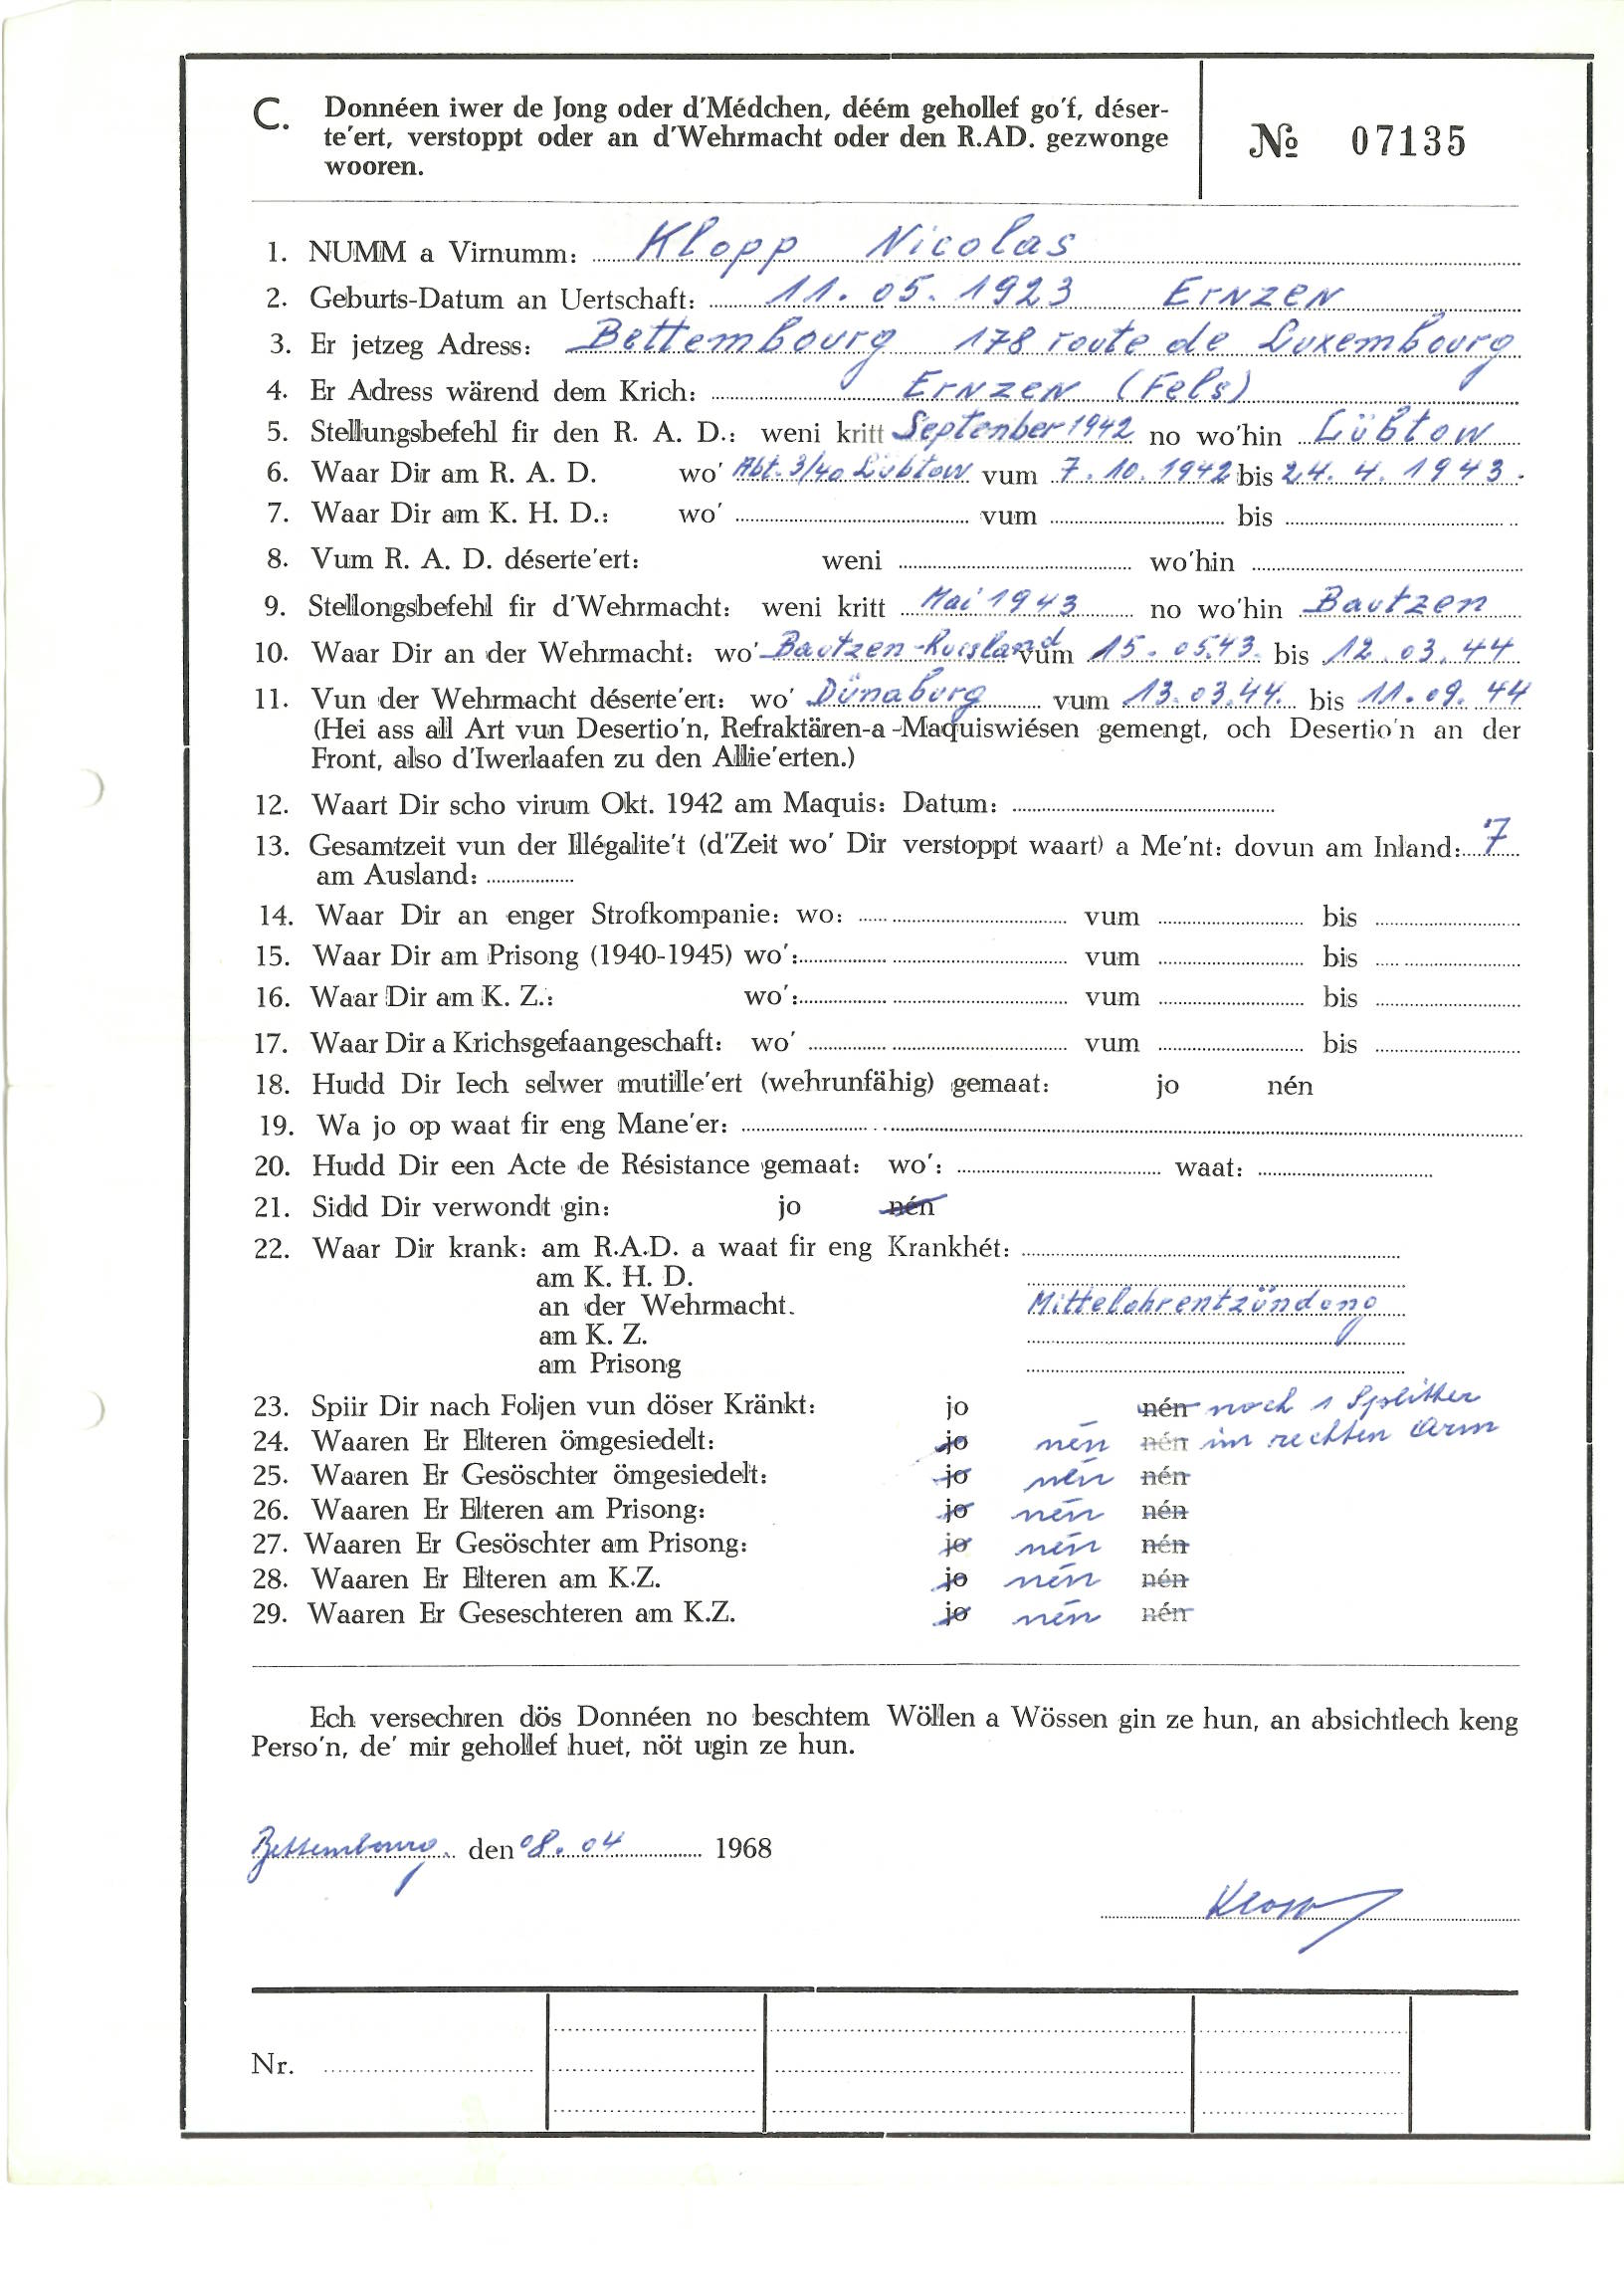 C. Donnéen iwer de Jong oder d'Médchen, déém gehollef go'f, déser-
te'ert, verstoppt oder an d'Wehrmacht oder den R.AD. gezwonge
wooren.
№ 07135
1. NUMM a Virnumm: Klopp Nicolas
2. Geburts-Datum an Uertschaft: 11.05.1923 Ernzen
3. Er jetzeg Adress: Bettembourg 178 route de Luxembourg
4. Er Adress wärend dem Krich: Ernzen (Fels)
5. Stellungsbefehl fir den R. A. D.: weni kritt September 1942 no wo'hin Lüßtow
6. Waar Dir am R. A. D. wo' Abt. 3/40 Lübtow vum 7.10.1942 bis 24.4.1943.
7. Waar Dir am K. H. D.: wo' vum bis
8. Vum R. A. D. déserte'ert: weni wo'hin
9. Stellongsbefehl fir d'Wehrmacht: weni kritt Mai 1943 no wo'hin Bautzen
10. Waar Dir an der Wehrmacht: wo' Bautzen-Russland vum 15.05.43. bis 12.03.44
11. Vun der Wehrmacht déserte'ert: wo' Dünaburg vum 13.03.44. bis 11.09.44
(Hei ass all Art vun Desertio'n, Refraktären-a-Maquiswiésen gemengt, och Desertio'n an der
Front, also d'Iwerlaafen zu den Allie'erten.)
12. Waart Dir scho virum Okt. 1942 am Maquis: Datum:
13. Gesamtzeit vun der Illégalite't (d'Zeit wo' Dir verstoppt waart) a Me'nt: dovun am Inland: 7
am Ausland:
14. Waar Dir an enger Strofkompanie: wo: vum bis
15. Waar Dir am Prisong (1940-1945) wo': vum bis
16. Waar Dir am K. Z.: wo': vum bis
17. Waar Dir a Krichsgefaangeschaft: wo' vum bis
18. Hudd Dir Iech selwer mutille'ert (wehrunfähig) gemaat: jo nén
19. Wa jo op waat fir eng Mane'er:
20. Hudd Dir een Acte de Résistance gemaat: wo': waat:
21. Sidd Dir verwondt gin: jo nén
22. Waar Dir krank: am R.A.D. a waat fir eng Krankhét:
am K. H. D.
an der Wehrmacht. Mittelohrentzündung
am K. Z.
am Prisong
23. Spiir Dir nach Foljen vun döser Kränkt: jo nén noch 1 Splitter
24. Waaren Er Elteren ömgesiedelt: jo nén nén im rechten Arm
25. Waaren Er Gesöschter ömgesiedelt: jo nén nén
26. Waaren Er Elteren am Prisong: jo nén nén
27. Waaren Er Gesöschter am Prisong: jo nén nén
28. Waaren Er Elteren am K.Z. jo nén nén
29. Waaren Er Geseschteren am K.Z. jo nén nén
Ech versechren dös Donnéen no beschtem Wöllen a Wössen gin ze hun, an absichtlech keng
Perso'n, de' mir gehollef huet, nöt ugin ze hun.
Bettembourg, den 08.04 1968
Klopp
Nr.